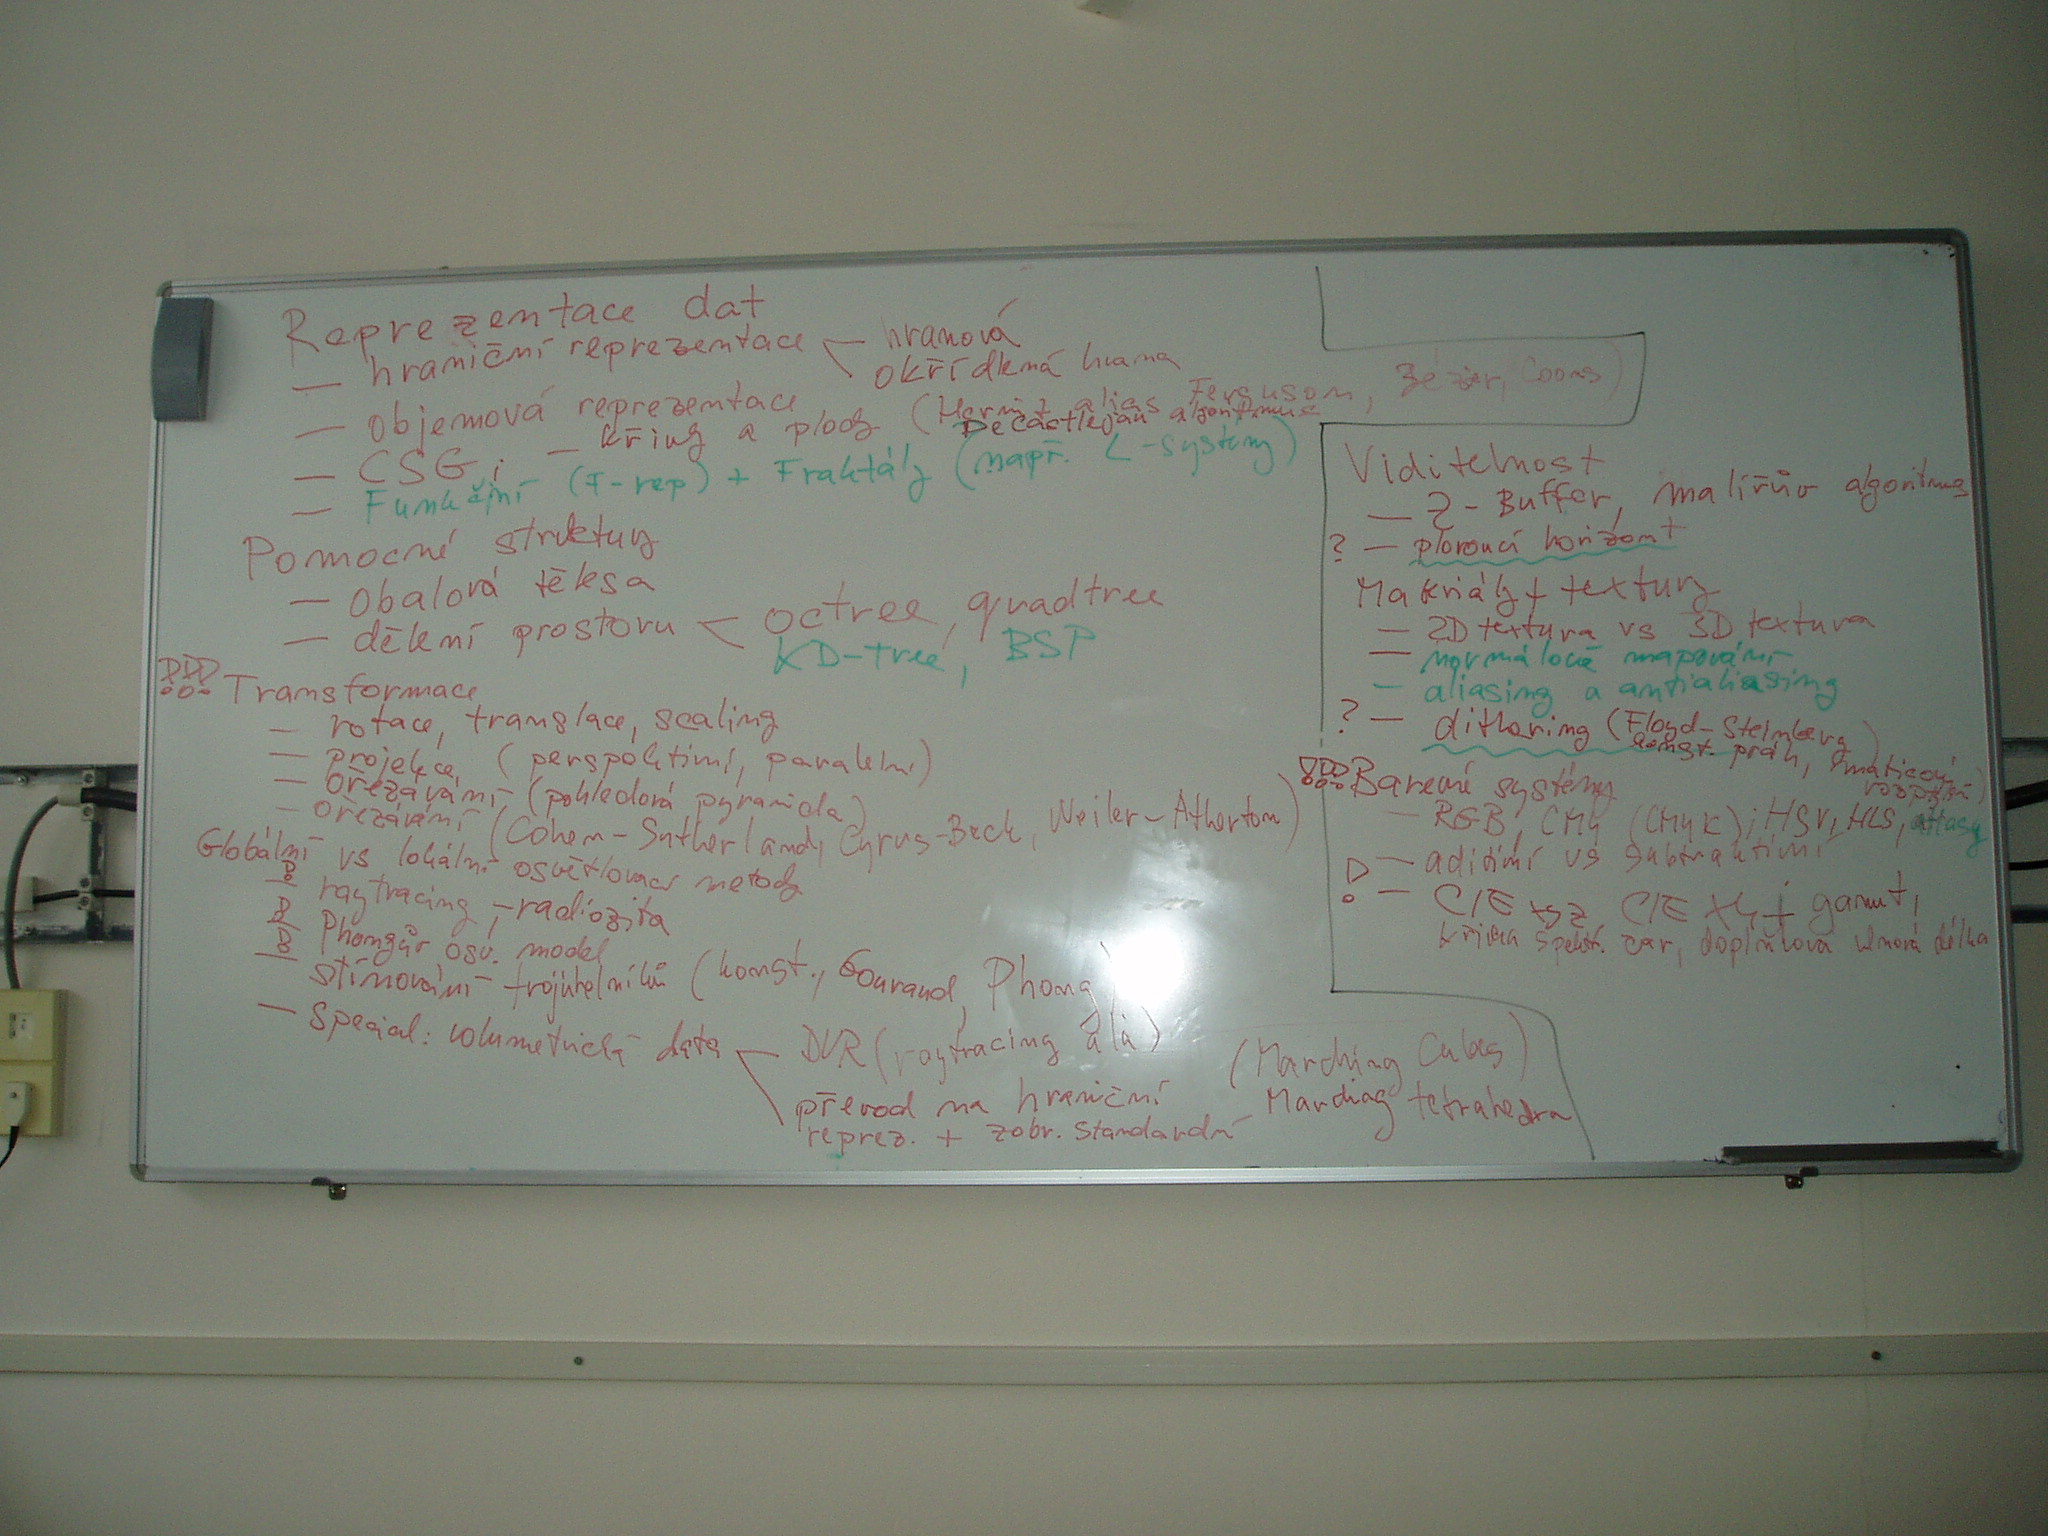 Reprezentace dat
— hraniční reprezentace — hranová
okřídlená hrana
— objemová reprezentace
— CSG; — křivky a plochy (Hermit alias Ferguson, Bézier, Coons)
De Casteljau algoritmus
— Funkční (F-rep) + Fraktály (např. L-systémy)
Pomocné struktury
— Obalová tělesa
— dělení prostoru < octree, quadtree
KD-tree, BSP
!!! Transformace
— rotace, translace, scaling
— projekce, (perspektivní, paralelní)
— ořezávání (pohledová pyramida)
— ořezávání (Cohen-Sutherland, Cyrus-Beck, Weiler-Atherton)
Globální vs lokální osvětlovací metody
! raytracing, radiozita
! Phongův osv. model
! stínování trojúhelníků (konst., Gouraud, Phong)
— Special: volumetrická data — DVR (raytracing álá)
převod na hraniční (Marching Cubes)
reprez. + zobr. standardní Marching tetrahedra
Viditelnost
— Z-Buffer, malířův algoritmus
? — plovoucí horizont
Materiály + textury
— 2D textura vs 3D textura
— normálové mapování
— aliasing a antialiasing
? — dithering (Floyd-Steinberg
konst. práh, maticové
rozptýl.)
!!! Barevné systémy
— RGB, CMY (CMYK); HSV, HLS, atlasy
— aditivní vs subtraktivní
! — CIE xyz, CIE xy + gamut,
křivka spekt. čar, doplňková vlnová délka